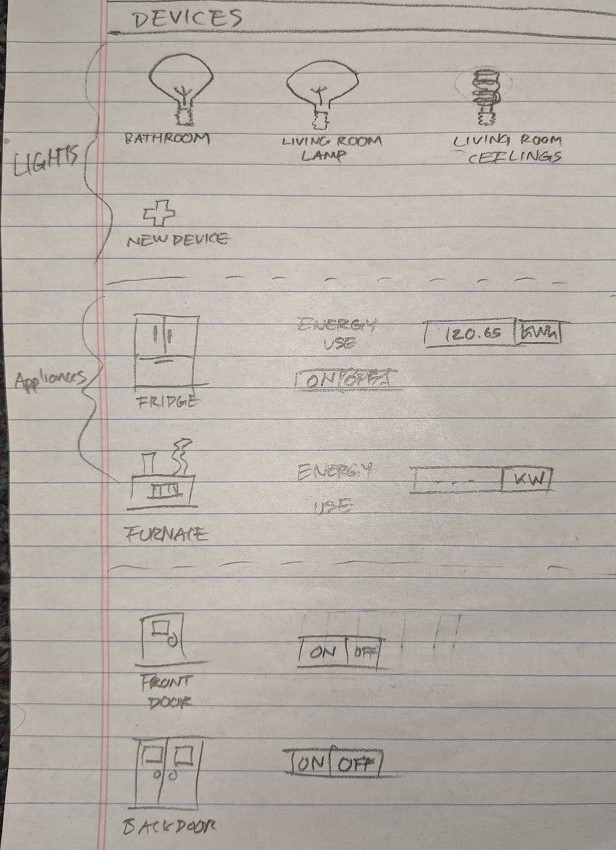 DEVICES
LIGHTS
BATHROOM
LIVING ROOM
LAMP
LIVING ROOM
CEILINGS
NEW DEVICE
Appliances
FRIDGE
ENERGY
USE
120.65 KWh
ON OFF
FURNACE
ENERGY
USE
--- KW
FRONT
DOOR
ON OFF
BACKDOOR
ON OFF